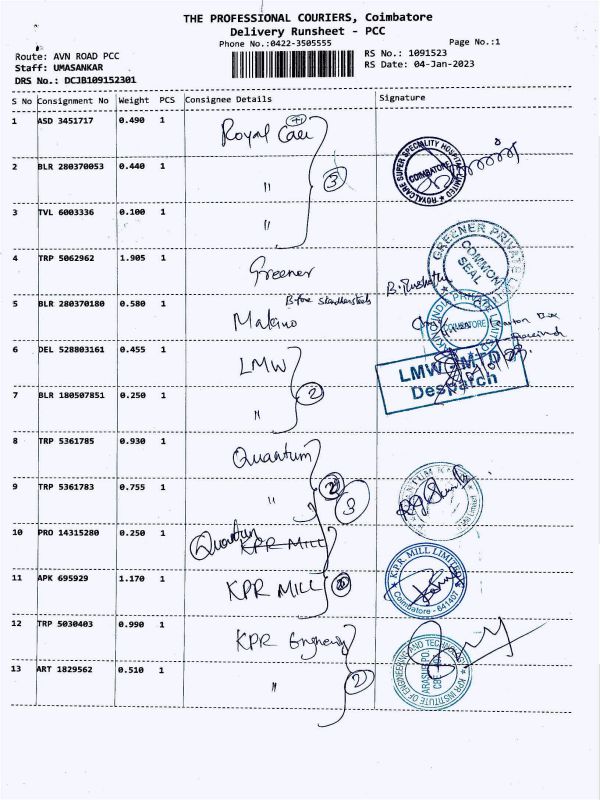 THE PROFESSIONAL COURIERS, Coimbatore
Delivery Runsheet - PCC
Phone No.:0422-3505555
Page No.:1
Route: AVN ROAD PCC
RS No.: 1091523
Staff: UMASANKAR
RS Date: 04-Jan-2023
DRS No.: DCJB109152301
S No Consignment No Weight PCS Consignee Details Signature
1 ASD 3451717 0.490 1 Royal Care
ROYALCARE SUPER SPECIALITY HOSPITAL LIMITED COIMBATORE
2 BLR 280370053 0.440 1 "
3
3 TVL 6003336 0.100 1 "
GREENER PRIVATE
COMMON SEAL
4 TRP 5062962 1.905 1 Greener
5 BLR 280370180 0.580 1 Makino
INDIA PRIVATE LIMITED
6 DEL 528803161 0.455 1 LMW
LMW
Despatch
7 BLR 180507851 0.250 1 "
2
8 TRP 5361785 0.930 1 Quantum
9 TRP 5361783 0.755 1 "
2
3
10 PRO 14315280 0.250 1 Quantum KPR MILL
11 APK 695929 1.170 1 KPR MILL
K.P.R. MILL LIMITED
Coimbatore - 641407
12 TRP 5030403 0.990 1 KPR
KPR INSTITUTE OF ENGINEERING AND TECHNOLOGY
13 ART 1829562 0.510 1 "
2